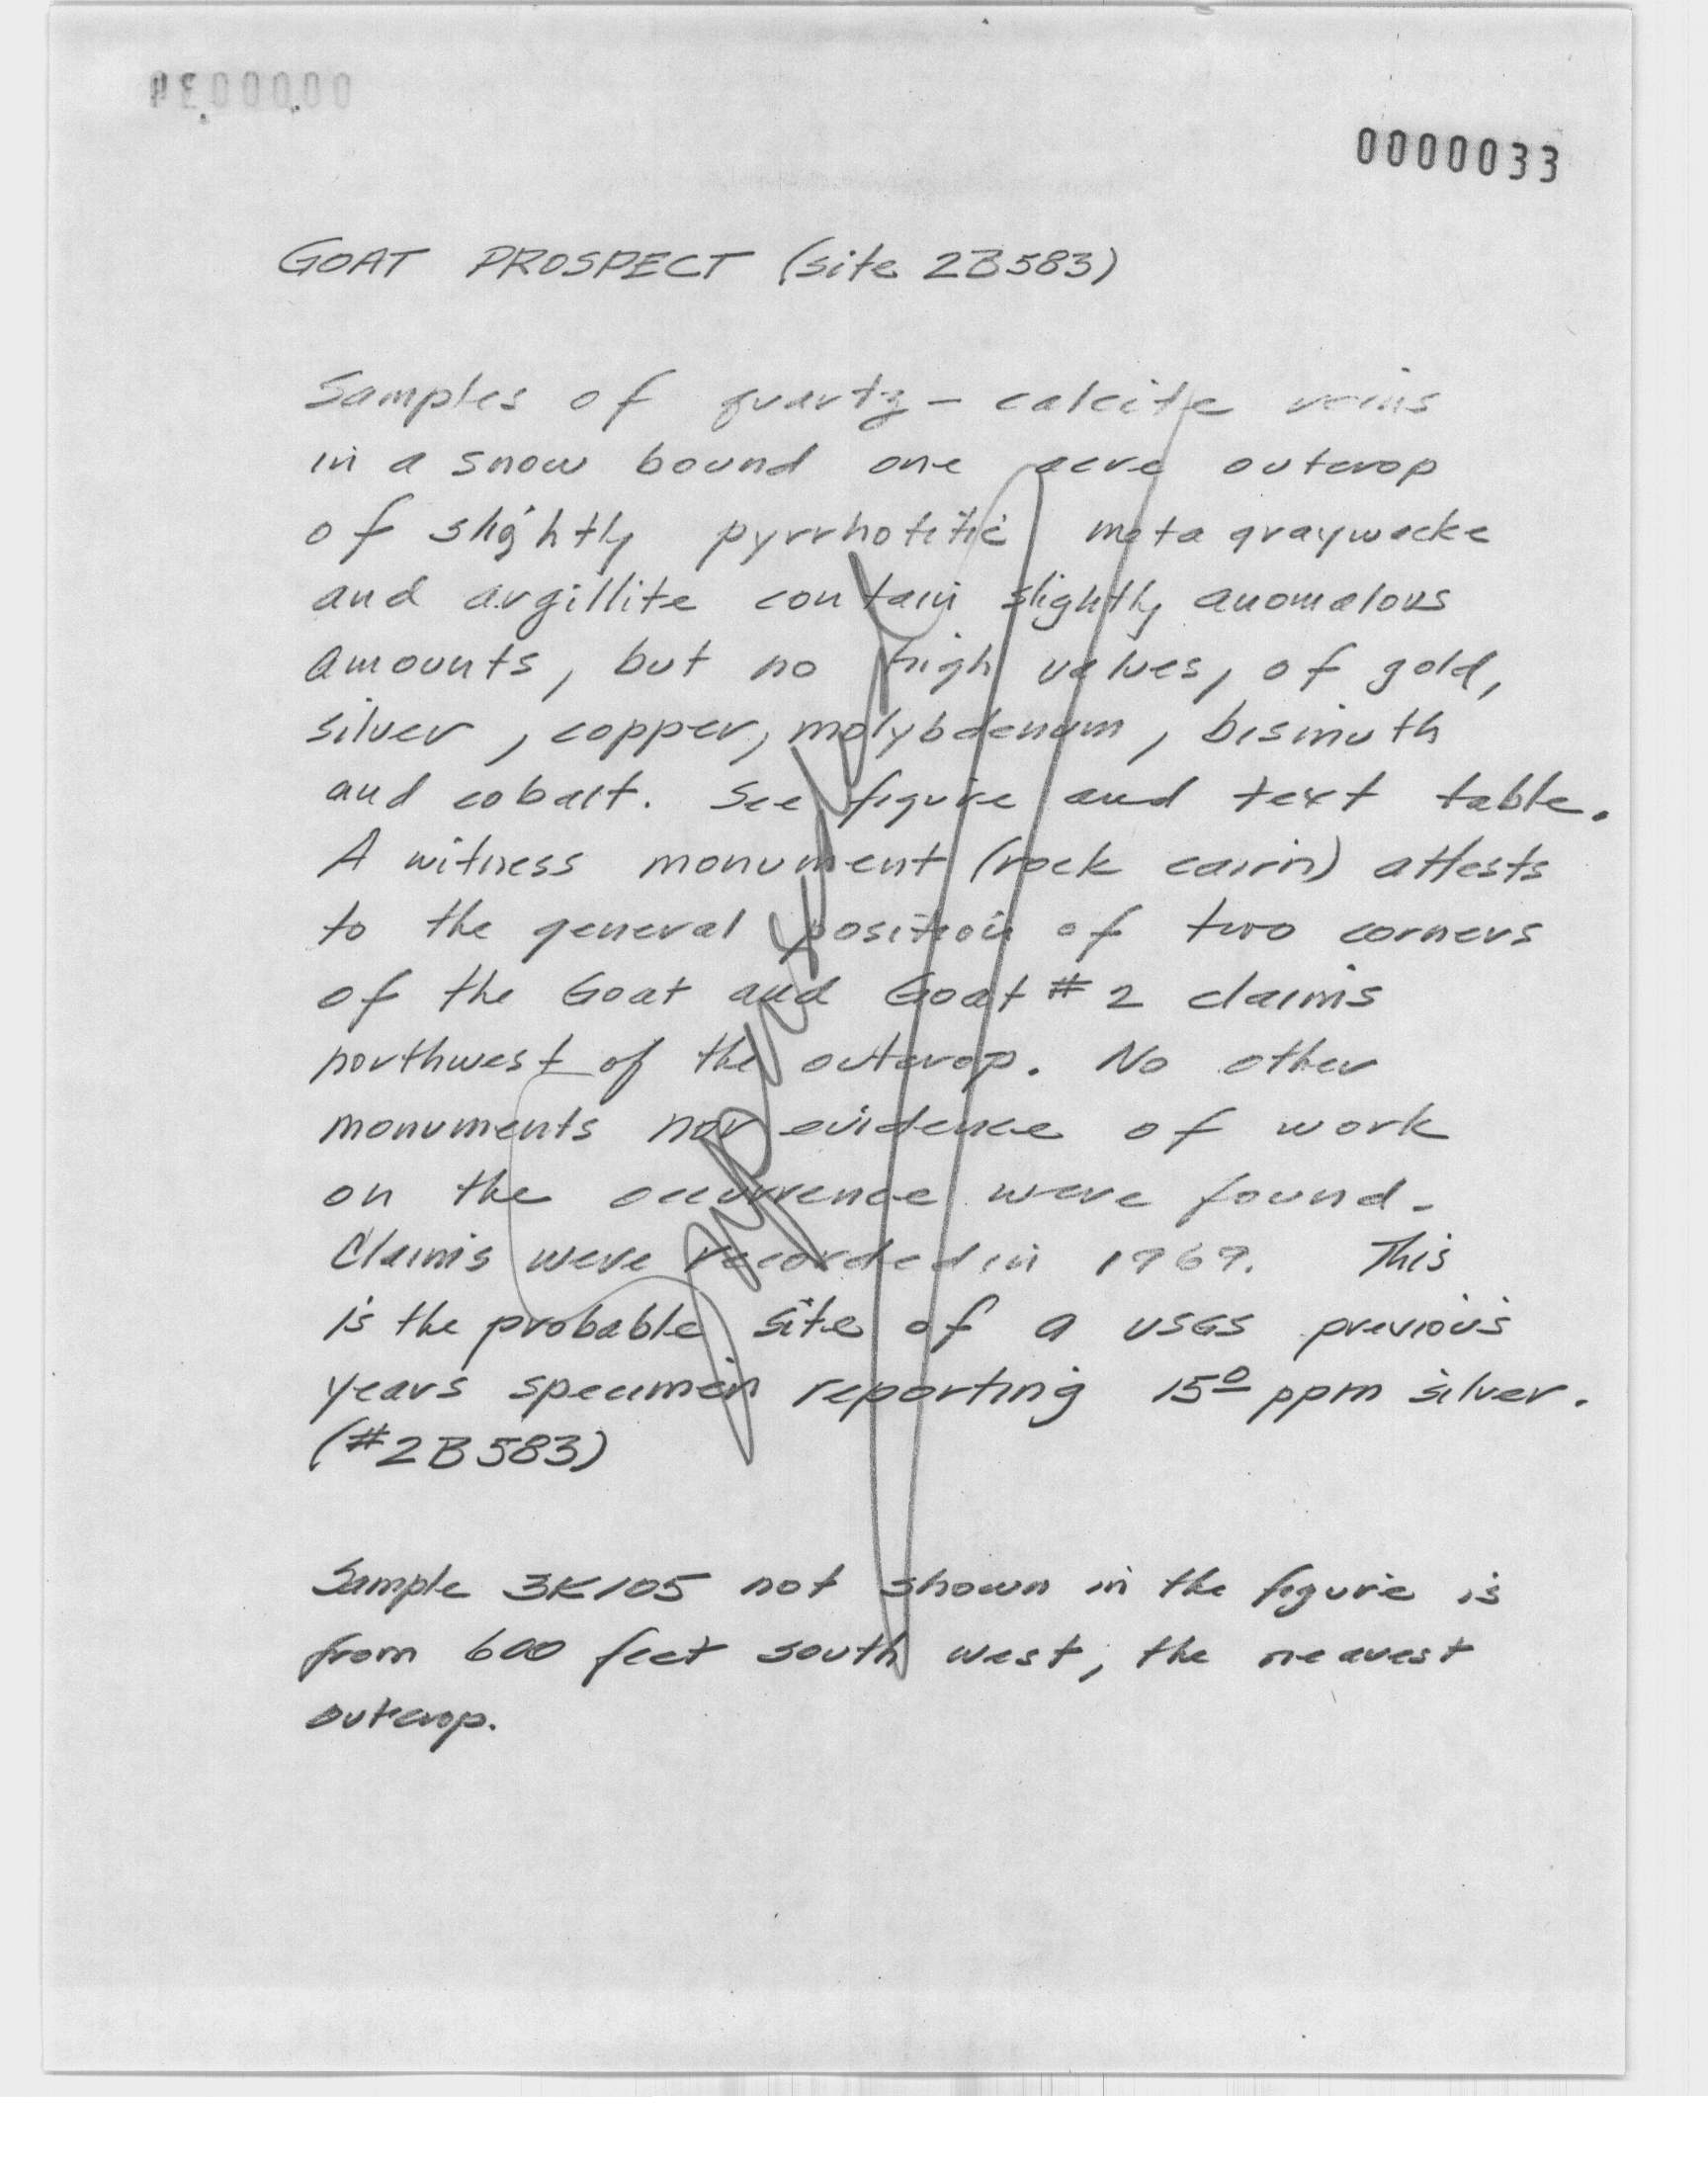 0000033
GOAT PROSPECT (site 2B583)
Samples of quartz - calcite veins
in a snow bound one acre outcrop
of slightly pyrrhotitic meta graywacke
and argillite contain slightly anomalous
amounts, but no high values, of gold,
silver, copper, molybdenum, bismuth
and cobalt. See figure and text table.
A witness monument (rock cairn) attests
to the general position of two corners
of the Goat and Goat #2 claims
northwest of the outcrop. No other
monuments nor evidence of work
on the occurrence were found.
Claims were recorded in 1969. This
is the probable site of a USGS previous
years specimen reporting 150 ppm silver.
(#2B583)
Sample 3K105 not shown in the figure is
from 600 feet south west, the nearest
outcrop.